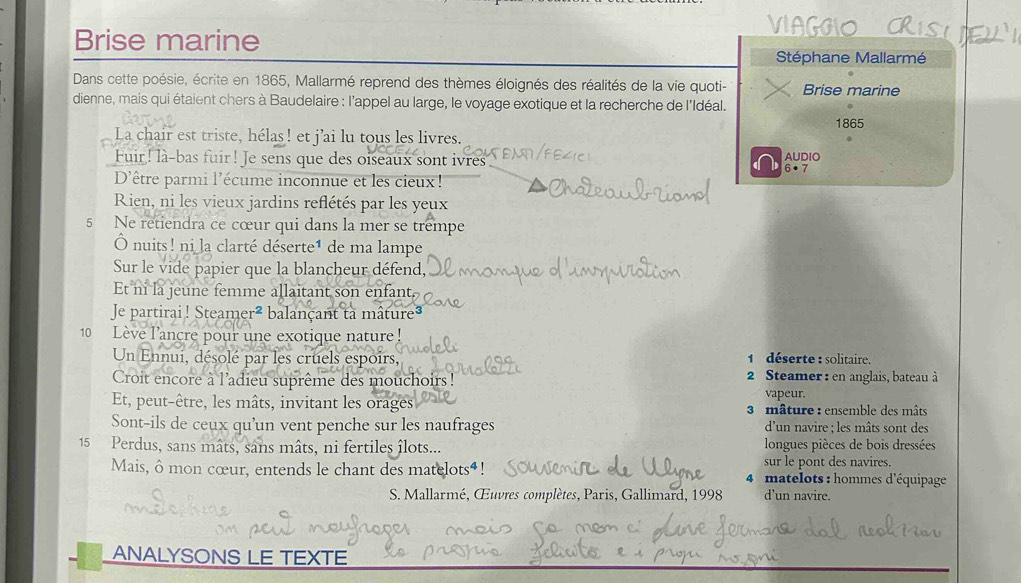 VIAGGIO CRISI DELL'I
Brise marine
Stéphane Mallarmé
Brise marine
1865
AUDIO
6 • 7
Dans cette poésie, écrite en 1865, Mallarmé reprend des thèmes éloignés des réalités de la vie quoti-
dienne, mais qui étaient chers à Baudelaire : l'appel au large, le voyage exotique et la recherche de l'Idéal.
carne
La chair est triste, hélas! et j'ai lu tous les livres.
UCCELLI CONTENTI/FELICI
Fuir! là-bas fuir! Je sens que des oiseaux sont ivres
D'être parmi l'écume inconnue et les cieux!
Chateaubriand
Rien, ni les vieux jardins reflétés par les yeux
5 Ne retiendra ce cœur qui dans la mer se trempe
Ô nuits! ni la clarté déserte¹ de ma lampe
vuoto
Sur le vide papier que la blancheur défend,
Il manque d'inspiration
neanche che allatta
Et ni la jeune femme allaitant son enfant.
Je partirai! Steamer² balançant ta mâture³
10 Lève l'ancre pour une exotique nature!
crudeli
Un Ennui, désolé par les cruels espoirs,
Croit encore à l'adieu suprême des mouchoirs!
Et, peut-être, les mâts, invitant les orages
tempeste
Sont-ils de ceux qu'un vent penche sur les naufrages
15 Perdus, sans mâts, sans mâts, ni fertiles îlots...
Mais, ô mon cœur, entends le chant des matelots⁴!
souvenir de Ulysse
S. Mallarmé, Œuvres complètes, Paris, Gallimard, 1998
1 déserte : solitaire.
2 Steamer : en anglais, bateau à
vapeur.
3 mâture : ensemble des mâts
d'un navire ; les mâts sont des
longues pièces de bois dressées
sur le pont des navires.
4 matelots : hommes d'équipage
d'un navire.
on peut naufrager mais ça non ci deve fermare dal realizzare
la propria felicità e i propri sogni
ANALYSONS LE TEXTE